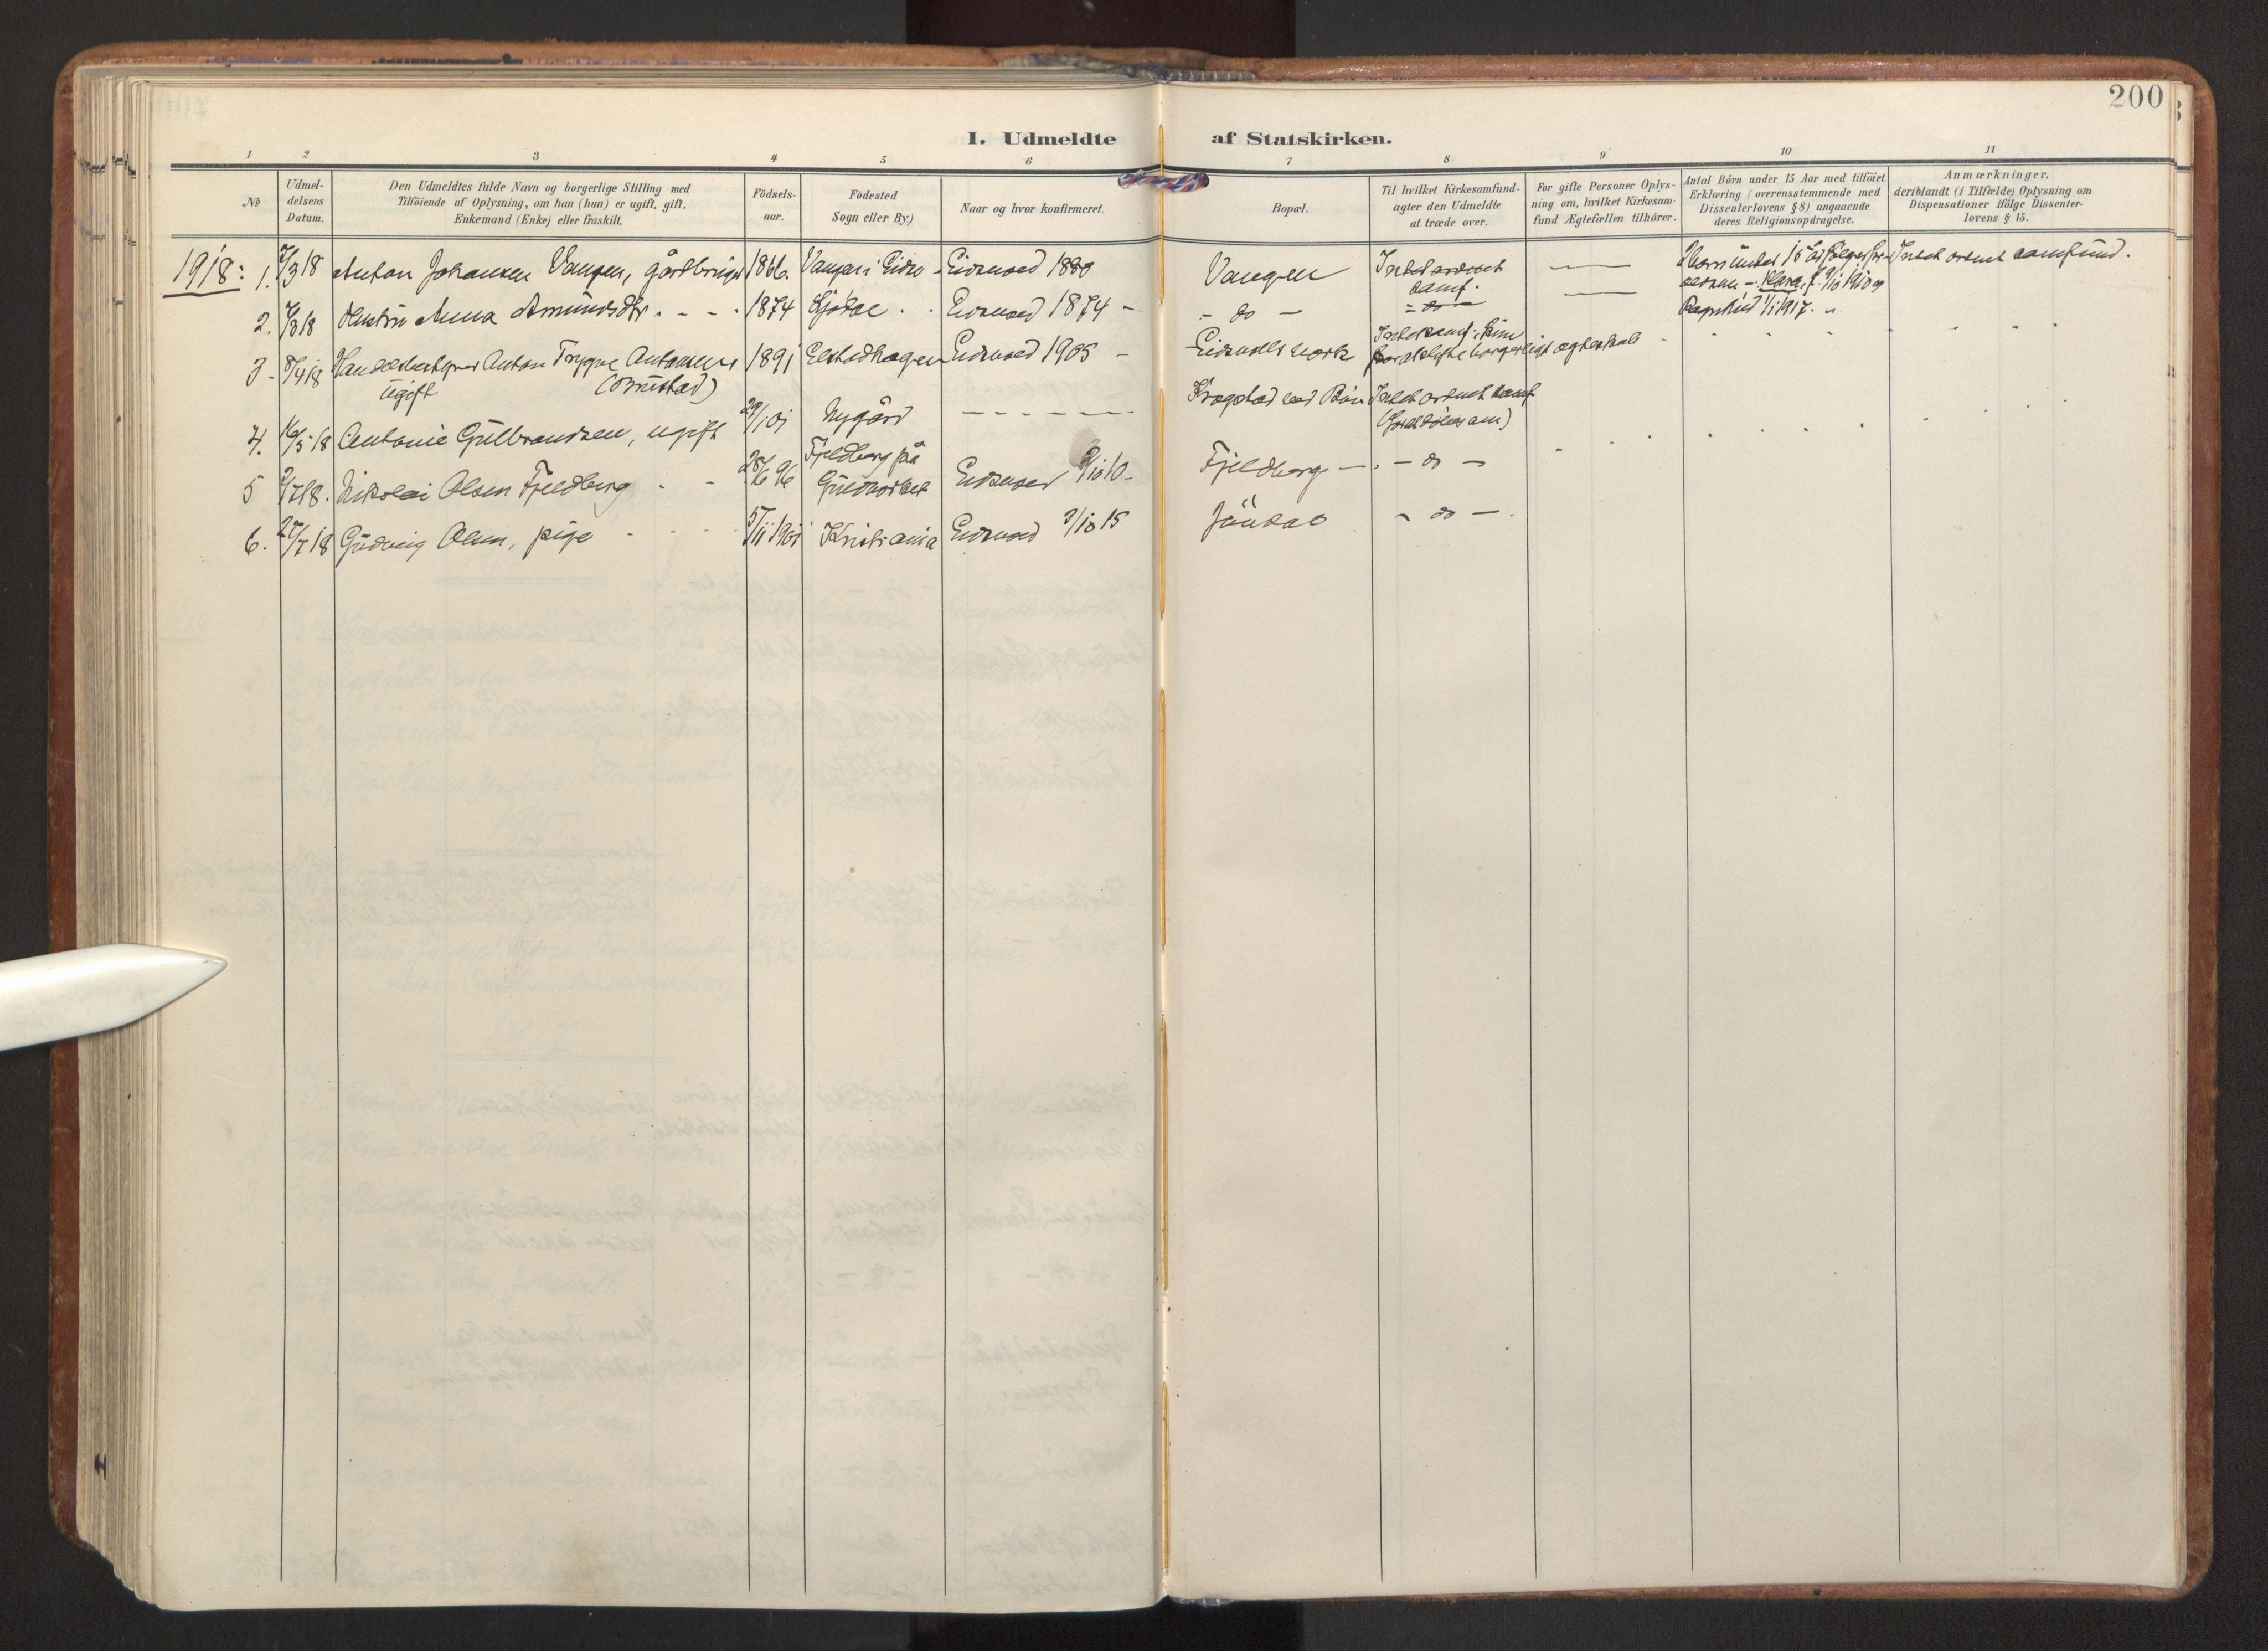 200
I. Udmeldte af Statskirken.
1 2 3 4 5 6 7 8 9 10 11
No
Udmel-
delsens
Datum.
Den Udmeldtes fulde Navn og borgerlige Stilling med
Tilföiende af Oplysning, om han (hun) er ugift, gift,
Enkemand (Enke) eller fraskilt.
Födsels-
aar.
Födested
Sogn eller By.)
Naar og hvor konfirmeret.
Bopæl.
Til hvilket Kirkesamfund-
agter den Udmeldte
at træde over.
For gifte Personer Oplys-
ning om, hvilket Kirkesam-
fund Ægtefællen tilhörer.
Antal Börn under 15 Aar med tilföiet
Erklæring (overensstemmende med
Dissenterlovens § 8) angaaende
deres Religionsopdragelse.
Anmærkninger,
deriblandt (i Tilfælde) Oplysning om
Dispensationer ifölge Dissenter-
lovens § 15.
1918: 1. 7/3 18 Anton Johansen Vangen, gårdbruger 1866. Vangen i Eidsv. Eidsvold 1880 Vangen Intet ordnet samf. — 2 born under 15 år følger for- Intet ordnet samfund.
ældrene – Klara, f. 1910 og
Ragnhild 1/1 1917.
2. 7/3 18 Hustru Anna Amundsdtr. 1874 Gjødal Eidsvold 1874 – – do – – do – —
3. 8/4 18 Handelsbestyrer Anton Trygve Antonsen 1891 Elstadhagen Eidsvold 1905 – Eidsvolds verk Intet samf.
ugift (Brustad) borgerligt ægteskab
4. 16/5 18 Antonie Gulbrandsen, ugift 29/1 01 Nygård – – – – – – Krogstad ved Bøn Intet ordnet samf
5 2/7 18. Nikolai Olsen Fjeldberg 28/6 96 Fjeldberg på
Guldverket Eidsvold 9/10 10 – Fjeldberg – – do –
6. 27/7 18 Gudveig Olsen, pige 5/11 1901 Kristiania Eidsvold 3/10 15 – do –